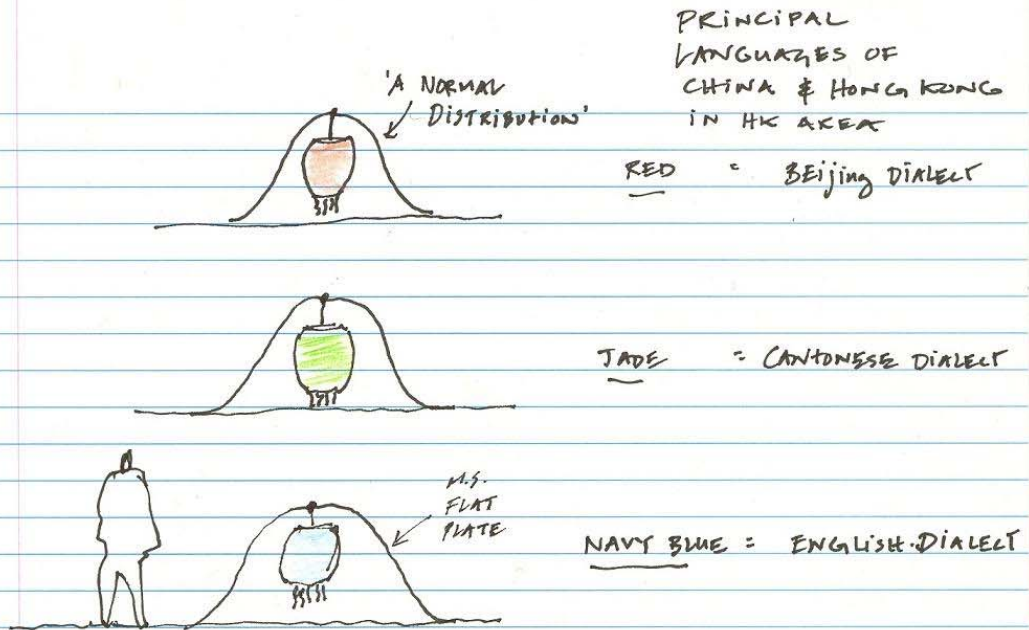 PRINCIPAL
LANGUAGES OF
CHINA & HONG KONG
IN HK AREA
'A NORMAL
DISTRIBUTION'
RED = BEIjing DIALECT
JADE = CANTONESE DIALECT
M.S.
FLAT
PLATE
NAVY BLUE = ENGLISH.DIALECT